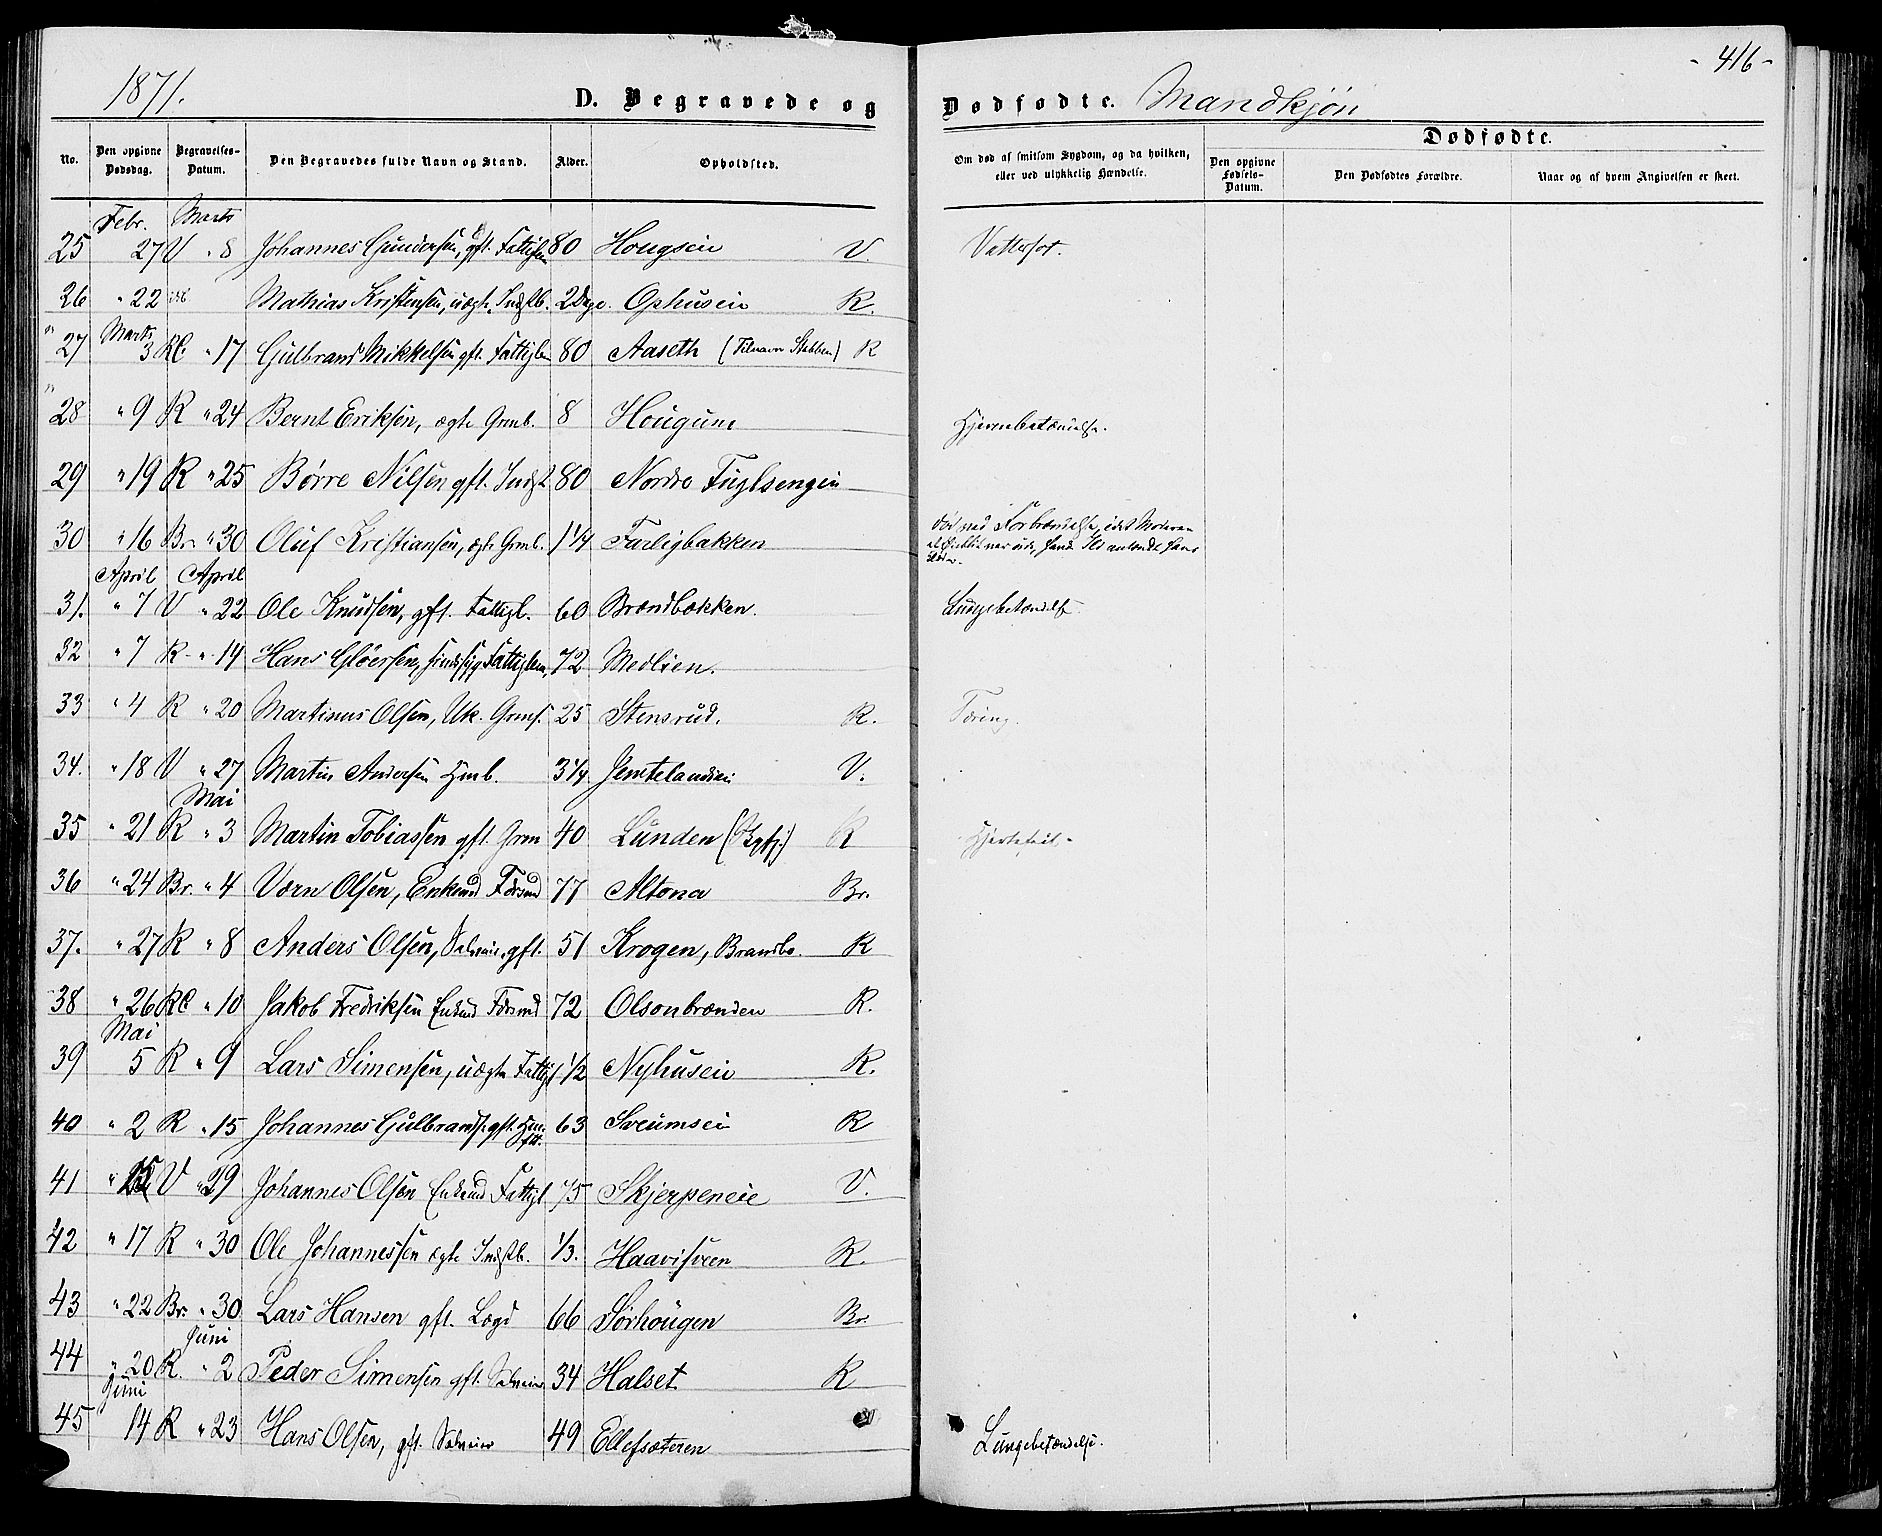 1871. D. Begravede og Dødfødte. Mandkjøn - 416 -
Dødfødte.
No. Den opgivne Dødsdag. Begravelses-Datum. Den Begravedes fulde Navn og Stand. Alder. Opholdsted. Om død af smitsom Sygdom, og da hvilken, eller ved ulykkelig Hændelse. Den opgivne Fødsels-Datum. Den Dødfødtes Forældre. Naar og af hvem Angivelsen er skeet.
Febr. Marts
25 27 V " 8 Johannes Gundersen, gft. Fattiglem 80 Hougseie V. Vattersot.
26 " 22 Mathias Kristensen, uægte Indstb. 2 Dage. Ophuseie R.
Marts
27 3 RC " 17 Gulbrand Mikkelsen gft. Fattiglem 80 Aaseth (Tilnavn Stabben) R
28 " 9 R " 24 Bernt Eriksen, ægte Grmb. 8 Hougum Hjernebetændelse.
29 " 19 R " 25 Børre Nilsen gft. Indst 80 Nordre Fuglsengen
30 " 16 Br. " 30 Oluf Kristiansen, ægte Grmb. 1 1/4 Furligbakken død ved Forbrændelse, idet Moderen et Øieblik var ude, hand Ild antændte hans Klæder.
April April
31. " 7 V " 22 Ole Knudsen, gft. Fattigl. 60 Brændbækken. Lungebetændelse.
32 " 7 R " 14 Hans Gløersen, sindssyg Fattiglem, 72 Medlien.
33 " 4 R " 20 Martinus Olsen, Uk. Grms. 25 Stensrud. R. Tæring.
34. " 18 V " 27 Martin Andersen Hmb. 3 1/4. Jemtelandseie V.
Mai
35 " 21 R " 3 Martin Tobiassen gft. Grm 40 Lunden R Hjertefeil -
36 " 24 Br. " 4 Værn Olsen, Enkemd Fdrmd 77 Altona Br.
37. " 27 R " 8 Anders Olsen, Selveier gft. 51 Krogen, Brandbo. R
38 " 26 RC " 10 Jakob Fredriksen Enkmd Fdrmd 72 Olsonbrænden R.
Mai
39 5 R " 9 Lars Simensen, uægte Fattigl 1/2 Nyhuseie R.
40 " 2 R " 15 Johannes Gulbrands. gft. Hm. 63 Sveumseie R
41 " 15 V " 29 Johannes Olsen Enkemd Fattigl 75 Skjerpeneie V.
42 " 17 R " 30 Ole Johannessen ægte Indstb. 1/3. Haavisveen R.
43 " 22 Br. " 30 Lars Hansen gft. Lægd 66 Sørhougen Br.
Juni
44 " 20 R. " 2 Peder Simensen gft. Selveier 34 Halset R
Juni
45 14 R " 23 Hans Olsen, gft. Selveier 49 Ellefsæteren Lungebetændelse.